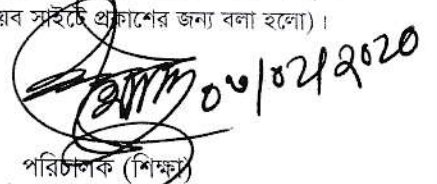 য়েব সাইটে প্রকাশের জন্য বলা হলো)।
০৬/০২/২০২০
পরিচালক (শিক্ষা)